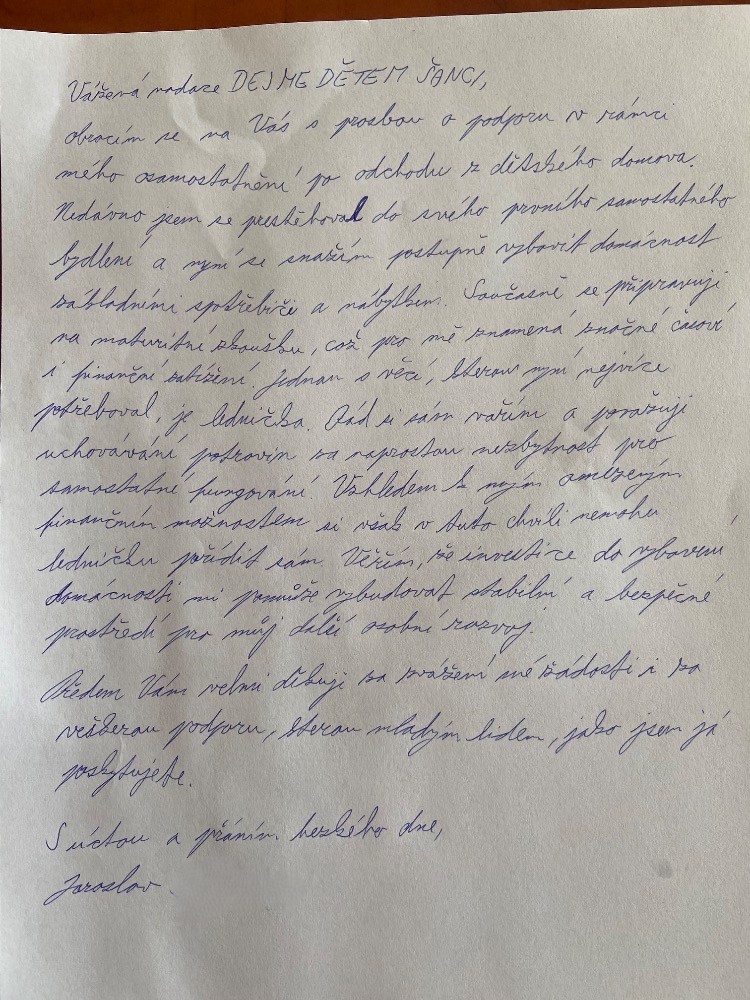 Vážená nadace DEJME DĚTEM ŠANCI,
obracím se na Vás s prosbou o podporu v rámci
mého osamostatnění po odchodu z dětského domova.
Nedávno jsem se přestěhoval do svého prvního samostatného
bydlení a nyní se snažím postupně vybavit domácnost
základními spotřebiči a nábytkem. Současně se připravuji
na maturitní zkoušku, což pro mě znamená značné časové
i finanční zatížení. Jednou s věcí, kterou nyní nejvíce
potřeboval, je lednička. Rád si sám vařím a považuji
uchovávání potravin za naprostou nezbytnost pro
samostatné fungování. Vzhledem k mým omezeným
finančním možnostem si však v tuto chvíli nemohu
ledničku pořídit sám. Věřím, že investice do vybavení
domácnosti mi pomůže vybudovat stabilní a bezpečné
prostředí pro můj další osobní rozvoj.
Předem Vám velmi děkuji za zvážení mé žádosti i za
veškerou podporu, kterou mladým lidem, jako jsem já
poskytujete.
S úctou a přáním hezkého dne,
Jaroslav.